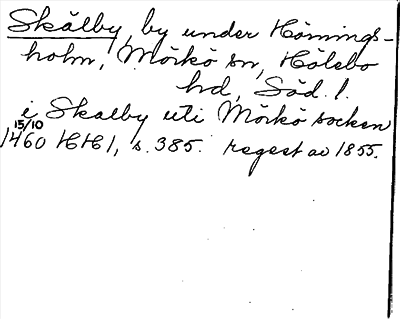 Skälby, by under Hörnings-
holm, Mörkö sn, Hölebo
hd, Söd. l.
i Skalby uti Mörkö socken
15/10
1460 HH 1, s. 385. regest av 1855.